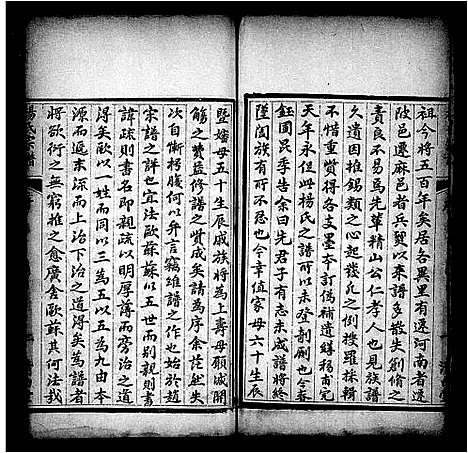 祖今將五百年矣居各異里有遷河南者遷
陂邑遷麻邑者兵燹以來譜多散失創脩之
責良不易易先輩精山公仁孝人也見族譜
久遺因推錫類之心起發凡之例搜羅採輯
不惜重貲得各支墨本訂偽補遺繕移甫完
天年永但此楊氏之譜所以未登剞劂也今春
鈺園昆季告余曰先君子有志未成譜將終
墜闔族有所不忍也今幸值家母六十生辰
暨嬸母五十生辰戚族將為上壽母願減開
觴之費益修譜之貲成矣請為序余茫然失
次自慚枵腹何以弁言竊維譜之作也始於趙
宋譜之詳也宜法歐蘇蘇以五世而別親則書
諱疏則書名即親疏以明厚薄而旁治之道
得矣歐以一姓而同以三為五以五為九由本
源而遞末而上治下治之道得矣為譜者
將欲衍之無窮推之愈廣舍歐蘇其何法哉
楊氏宗譜